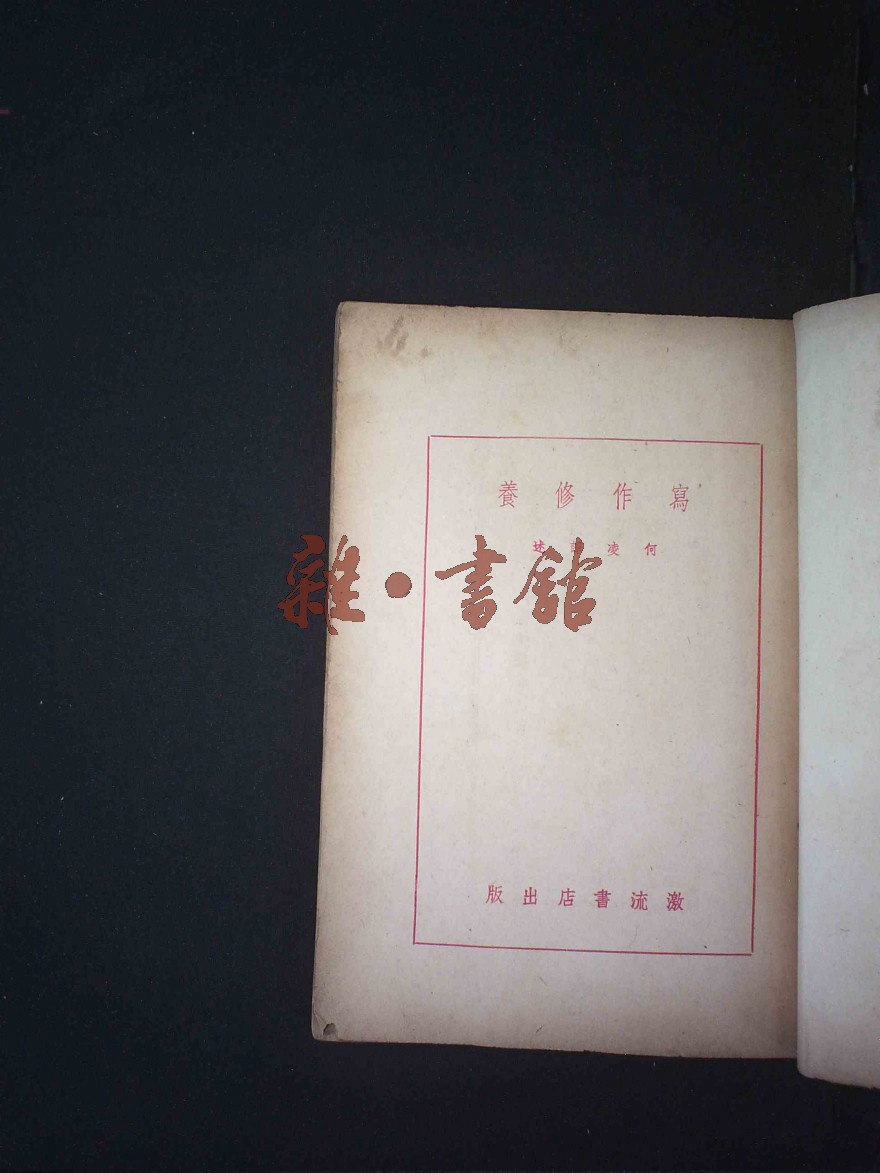 寫作修養
何凌述
雜·書館
激流書店出版